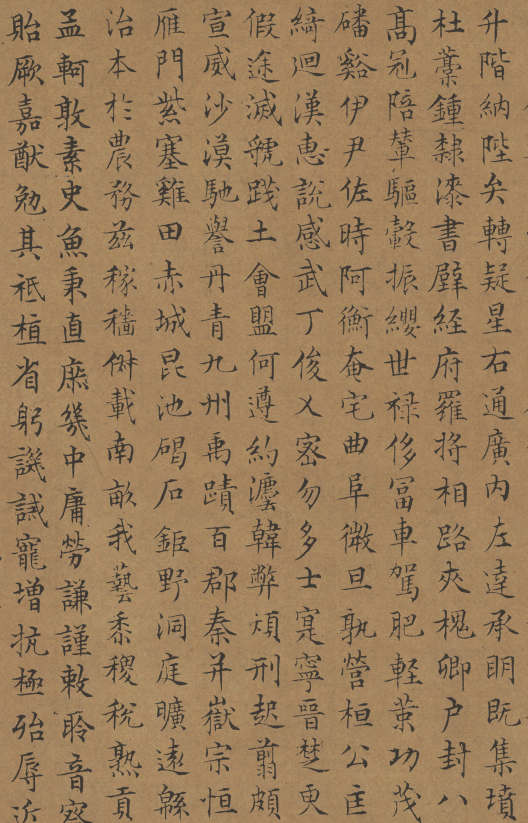 升階納陛弁轉疑星右通廣內左達承明既集墳
杜藁鍾隸漆書壁經府羅將相路夾槐卿户封八
髙冠陪輦驅轂振纓世禄侈冨車駕肥軽䇿功茂
磻谿伊尹佐時阿衡奄宅曲阜微旦孰營桓公匡
綺迴漢恵說感武丁俊乂密勿多士寔寧晉楚更
假途滅虢踐土會盟何遵約灋韓弊煩刑起翦頗
宣威沙漠馳譽丹青九州禹蹟百郡秦并嶽宗恒
雁門紫塞雞田赤城昆池碣石鉅野洞庭曠遠緜
治本於農務兹稼穡俶載南畝我藝黍稷稅熟貢
孟軻敦素史魚秉直庶幾中庸勞謙謹敕聆音察
貽厥嘉猷勉其祗植省躬譏誡寵增抗極殆辱近